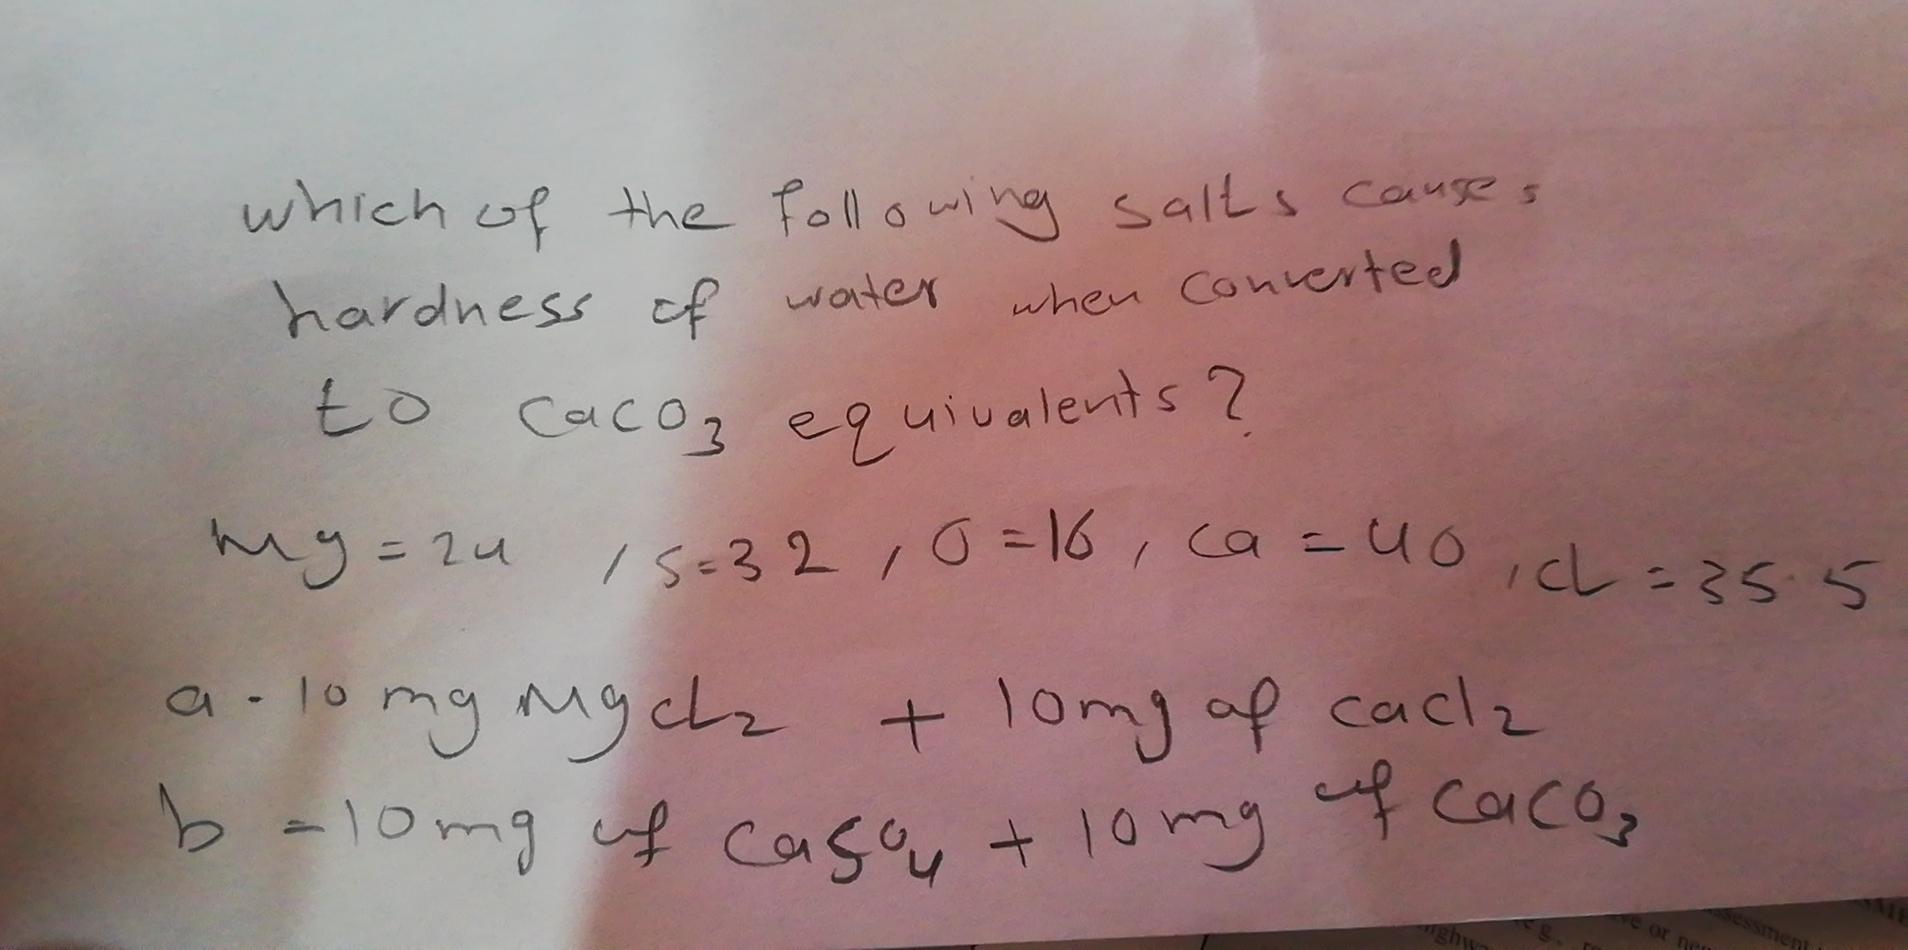 which of the following salts causes
hardness of water when converted
to caco3 equivalents?
mg = 24 , s=32 , O = 16 , ca = 40 , cl = 35.5
a - 10 mg Mgcl2 + 10mg of cacl2
b - 10mg of caso4 + 10mg of caco3